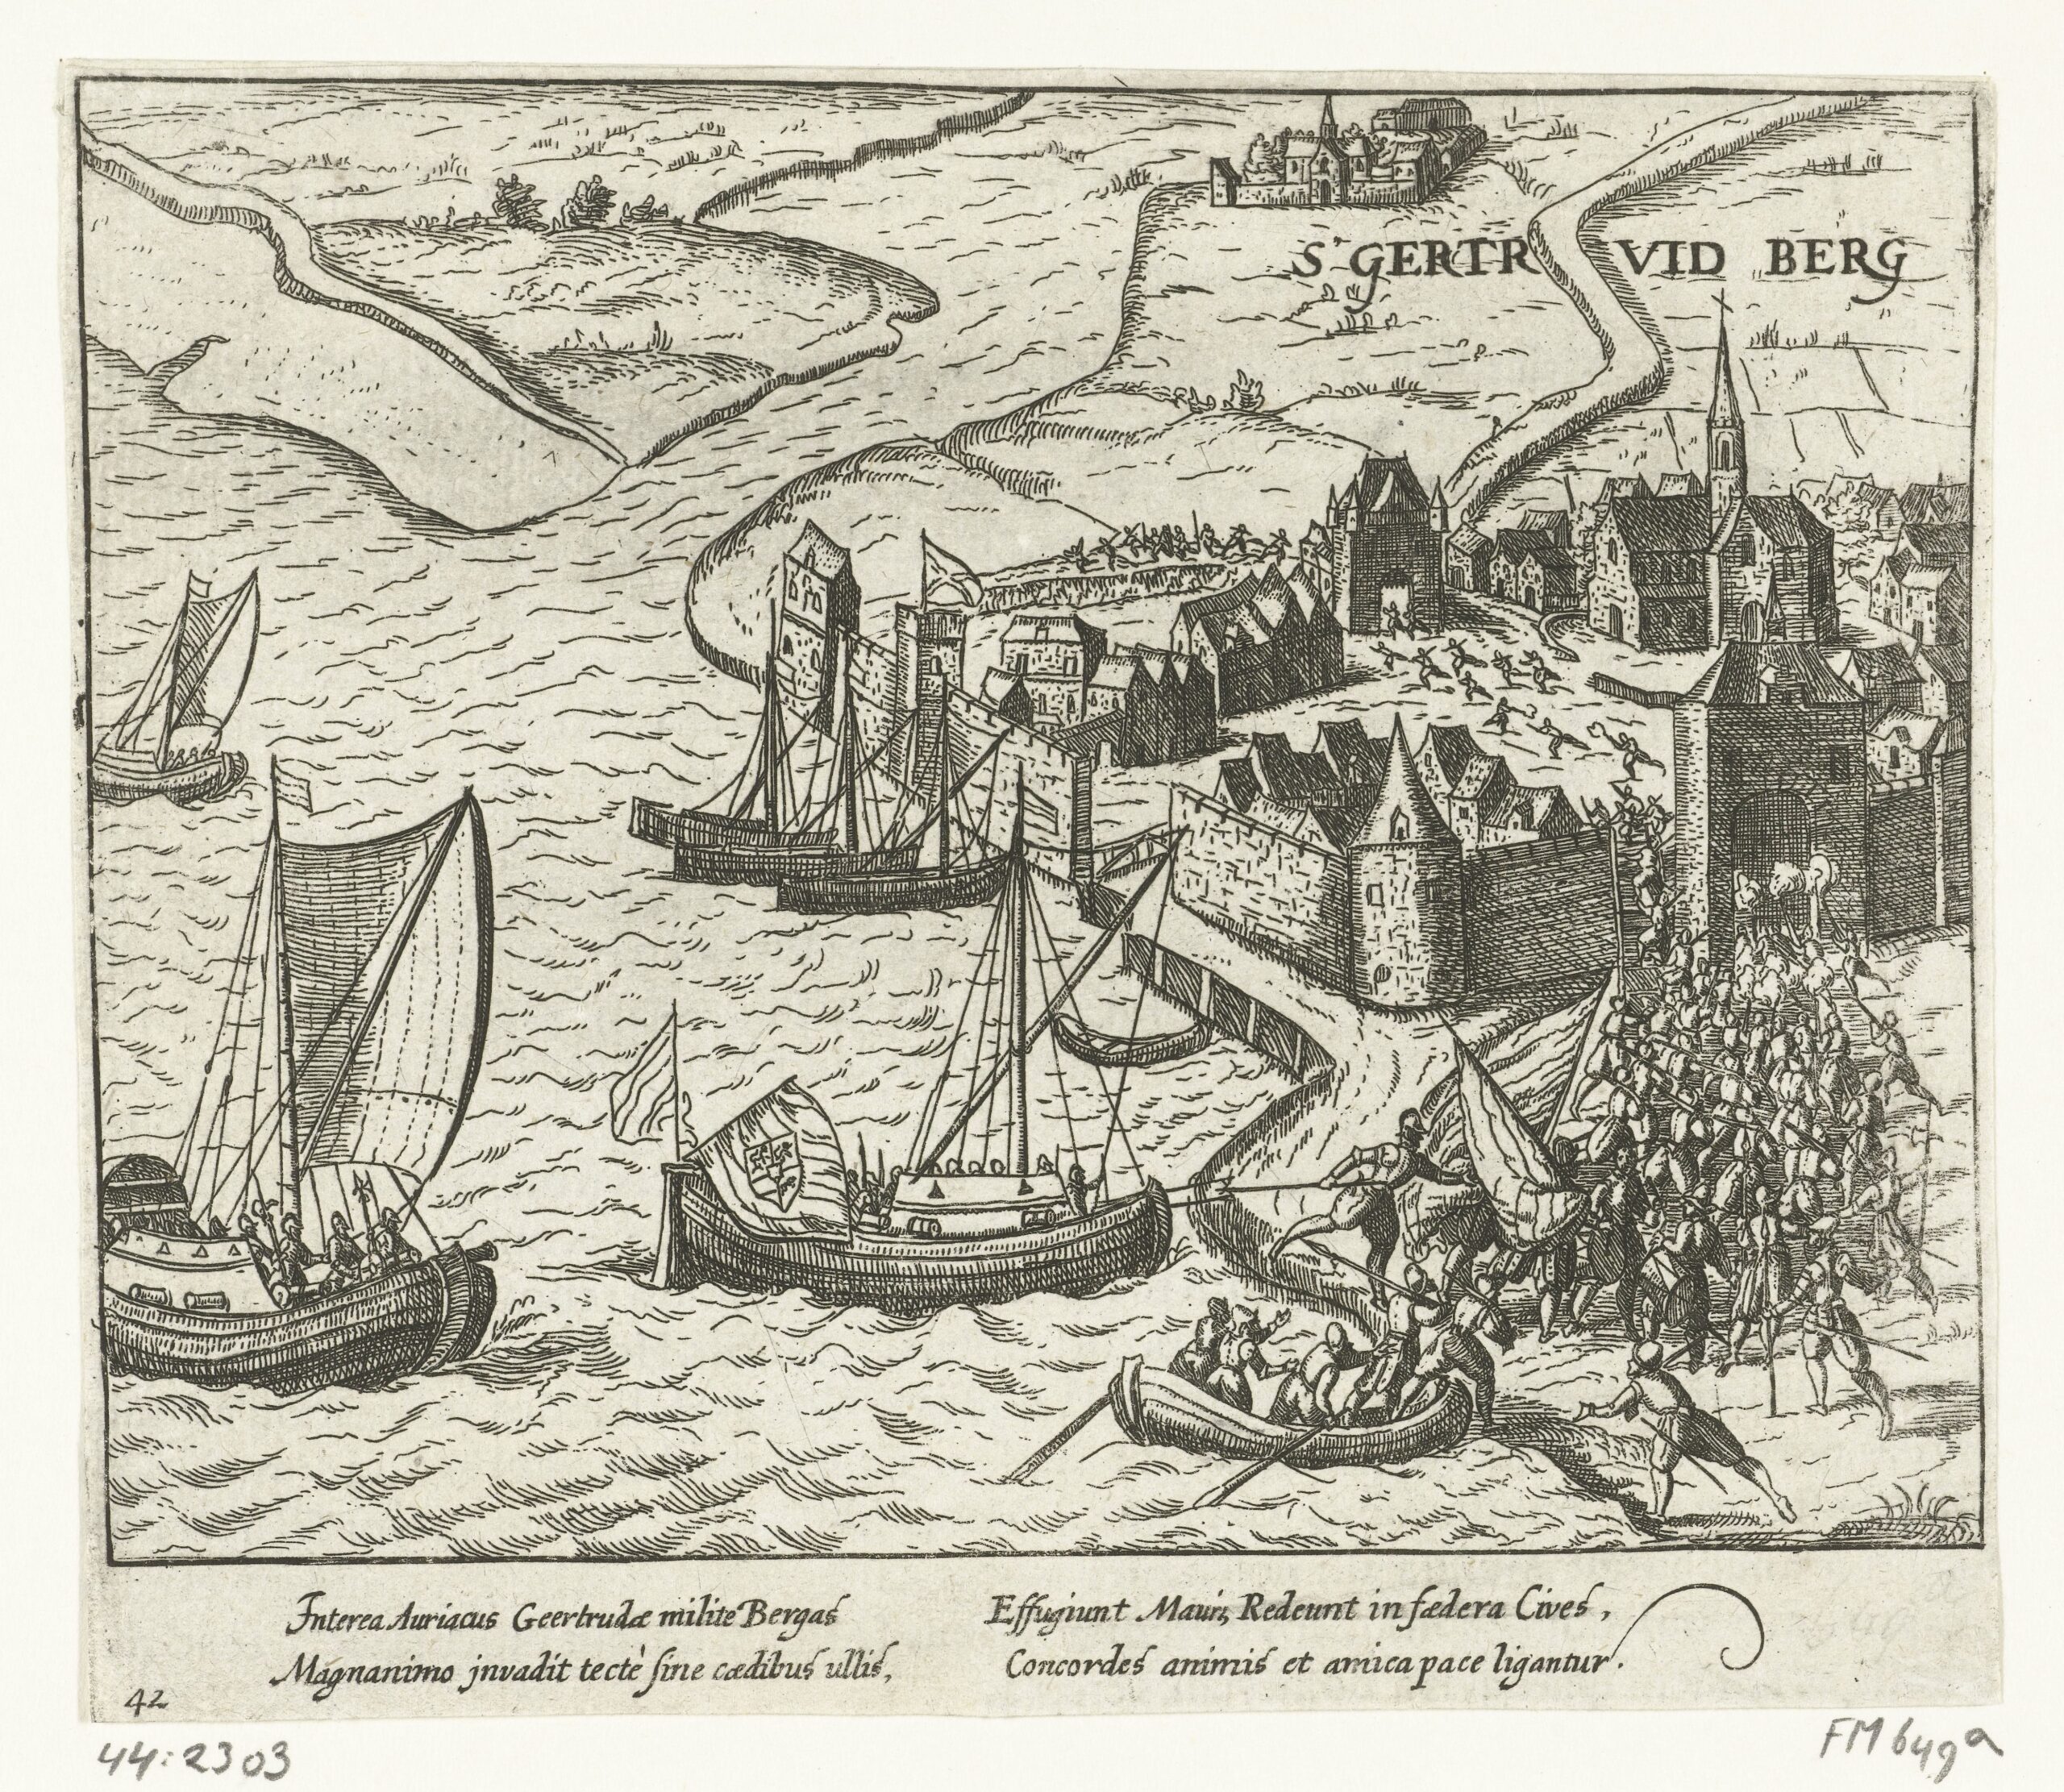 S^t GERTRVID BERG
Interea Auriacus Geertrudæ milite Bergas
Magnanimo jnvadit tectè sine cædibus ullis,
Effugiunt Mauri, Redeunt in fædera Cives,
Concordes animis et amica pace ligantur.
42
44:2303
FM 649a